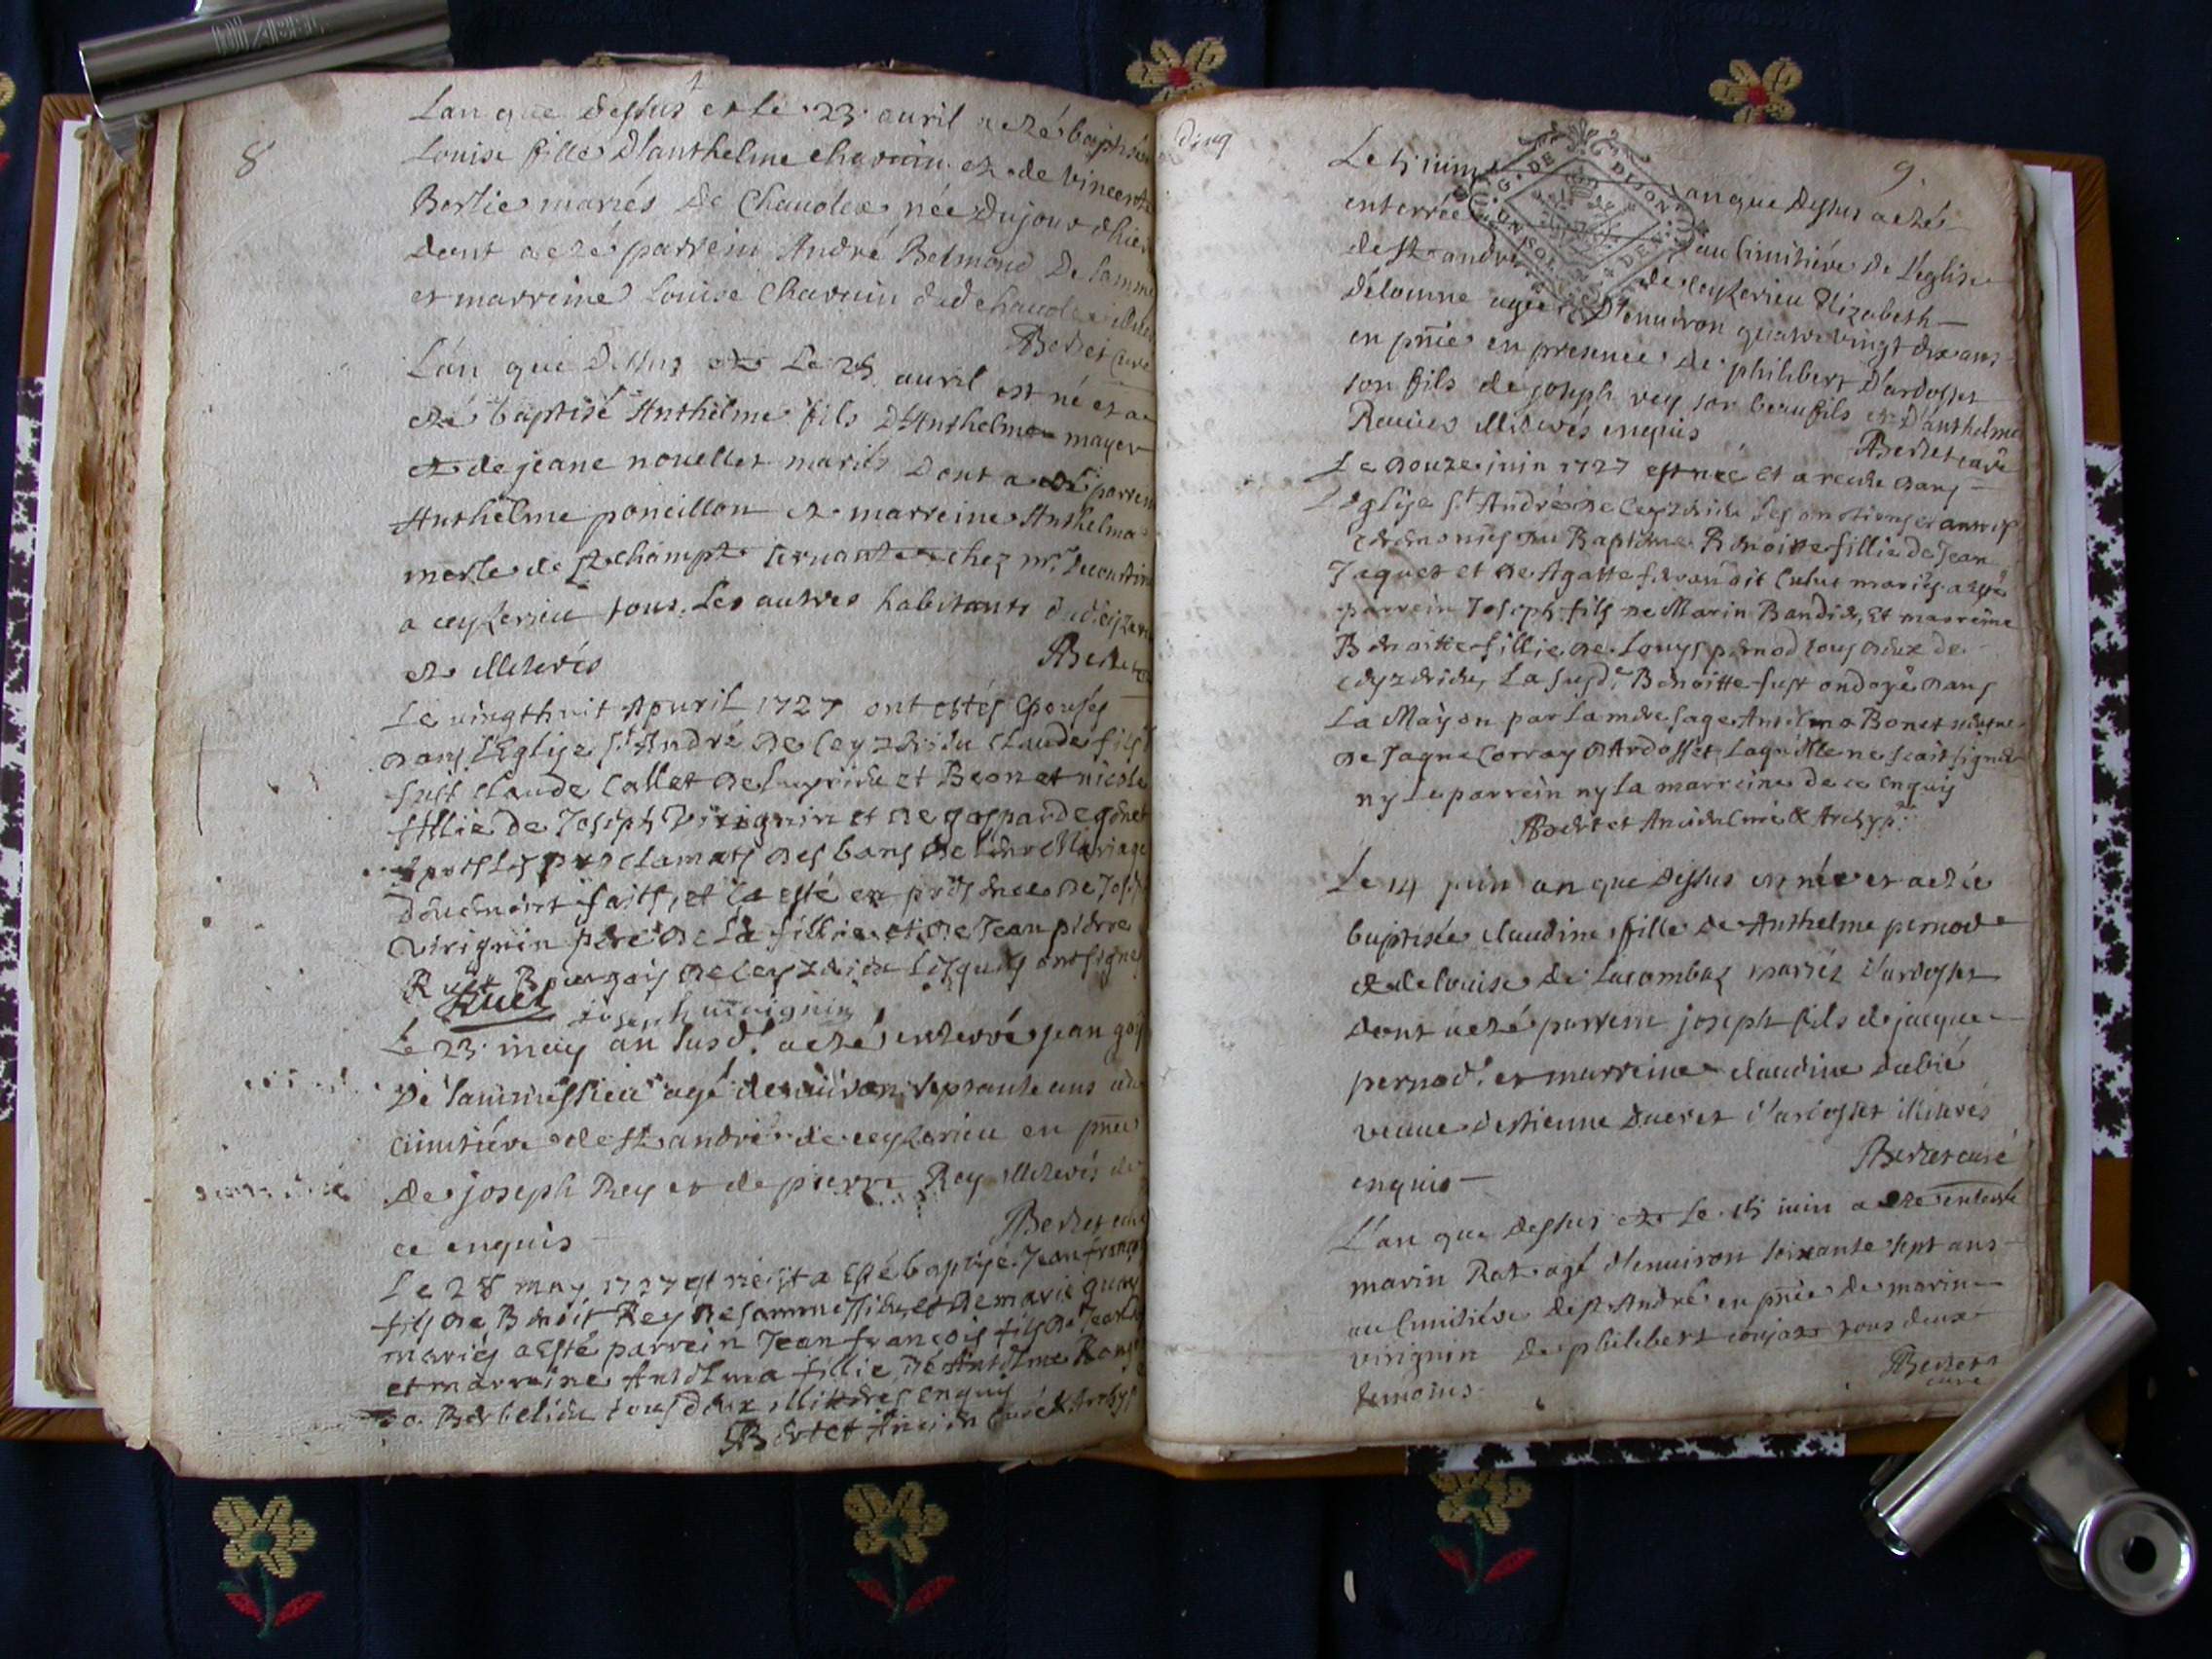 8
Lan que dessus et le 23 auril a eté baptisée
Louise fille d'anthelme chavuin et de vincente
Bertier mariés de Chaudex née du jour d'hier
dont a eté parrein André Belmond de Samme
et marreine Louise Chavuin dud
Bertet curé
L'an que dessus et le 25 auril est né et a
eté baptisé Anthelme fils d'Anthelme mayer
et de jeane nouellet mariés dont a eté parrein
Anthelme poncillon et marreine Anthelma
merle de st champt servante chez mr.
a ceyzerieu tous les autres habitants dud ceyzerieu
et illiterés
Bertet
Le vingthuit Apuril 1727 ont estés Epousés
dans l'Eglise St André de Ceyzerieu Claude fils
Claude Callet de et Beon et nicole
fillie de Joseph Virignin et de gasparde gonet
Apres les proclamats des bans de leur Mariage
deuement faits, et ce esté en présence de Jose
Virignin père de la fillie et de Jean pierre
Ruët Bourgois de Ceyzerieu lesquels ont signés
Ruet joseph uirignin
Le 23 may an susd. a eté enterré jean goy
de Sammessieu agé denuiron septante ans au
cimitiére de st andré de ceyzerieu en pnce
de joseph Rey et de pierre Rey illiterés de
ce enquis
Bertet curé
Le 28 may 1727 est né et a Esté baptisé Jean françois
fils de Benoit Rey de Sammessieu et de marie
mariés a Esté parrein Jean françois fils de Jean
et marraine Antelma fillie de Antelme
de Berbelieu tous deux illiteres Enquis
Bertet Ancien Curé & Archyp
9
Le 5 iuin an que dessus a eté
enterrée au cimitiére de l'eglise
de st andré de ceyzerieu Elizabeth
Delomne agée d'enuiron quatre vingt dix ans
en pnce en presence de philibert d'ardosset
son fils de joseph rey son beaufils et d'anthelme
Rauier illiterés enquis
Bertet curé
Le douze juin 1727 est née et a receu dans
L'Eglise St André de Ceyzerieu les onctions et autres
ceremonies du Baptême Benoitte fillie de Jean
Jaquet et de Agatte mariés a esté
parrein Joseph fils de Marin Bandit, Et marreine
Benoitte fillie de Louys pernod tous deux de
Ceyzerieu, La susde. Benoitte fust ondoyé dans
La Mayson par la mere sage Antelma Bonet
de Jaque Corray d'Ardosset, Laquelle ne scait signer
ny Le parrein ny la marreine de ce Enquis
Bertet Ancien Curé & Archyp
Le 14 juin an que dessus est née et a eté
baptisée claudine fille de Anthelme pernod
et de louise de Lacombaz mariéz d'ardosset
dont a eté parrein joseph fils de jacque
pernod. et marreine claudine dubié
veuue d'estienne ducret d'ardosset illiterés
enquis
Bertet curé
L'an que dessus et le 15 iuin a eté enterré
marin Rat agé d'enuiron soixante sept ans
au Cimitiére de st André en pnce de marin
virignin de philibert coujat tous deux
temoins
Bertet
curé